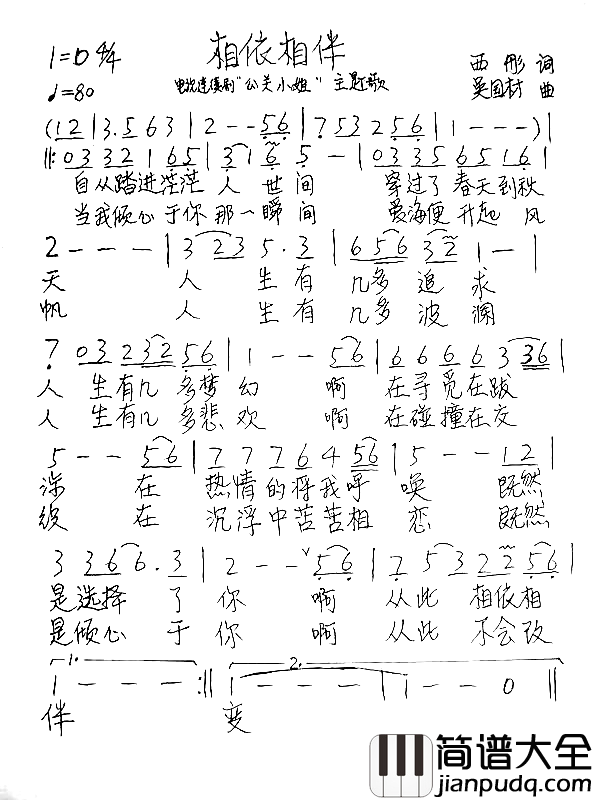 1=D 4/4
相依相伴
♩=80
电视连续剧"公关小姐"主题歌
西彤 词
吴国材 曲
(12|3.563|2--56|7532256|1---)|
‖:03332165|3165-|03356516|
自从踏进茫茫人世间 穿过了春天到秋
当我倾心于你那一瞬间 爱海便升起风
2---|3235.3|656321-|
天 人生有几多追求
帆 人生有几多波澜
70323256|1--56|6666336|
人生有几多梦幻 啊 在寻觅在跋
人生有几多悲欢 啊 在碰撞在交
5--56|77766456|5--12|
涉 在热情的将我呼唤 既然
织 在沉浮中苦苦相恋 既然
3366.3|2--ᵛ56|7532256|
是选择了你 啊 从此相依相
是倾心于你 啊 从此不会改
1. 2.
1---:‖1---|1--0‖
伴 变
简谱大全
jianpudq.com